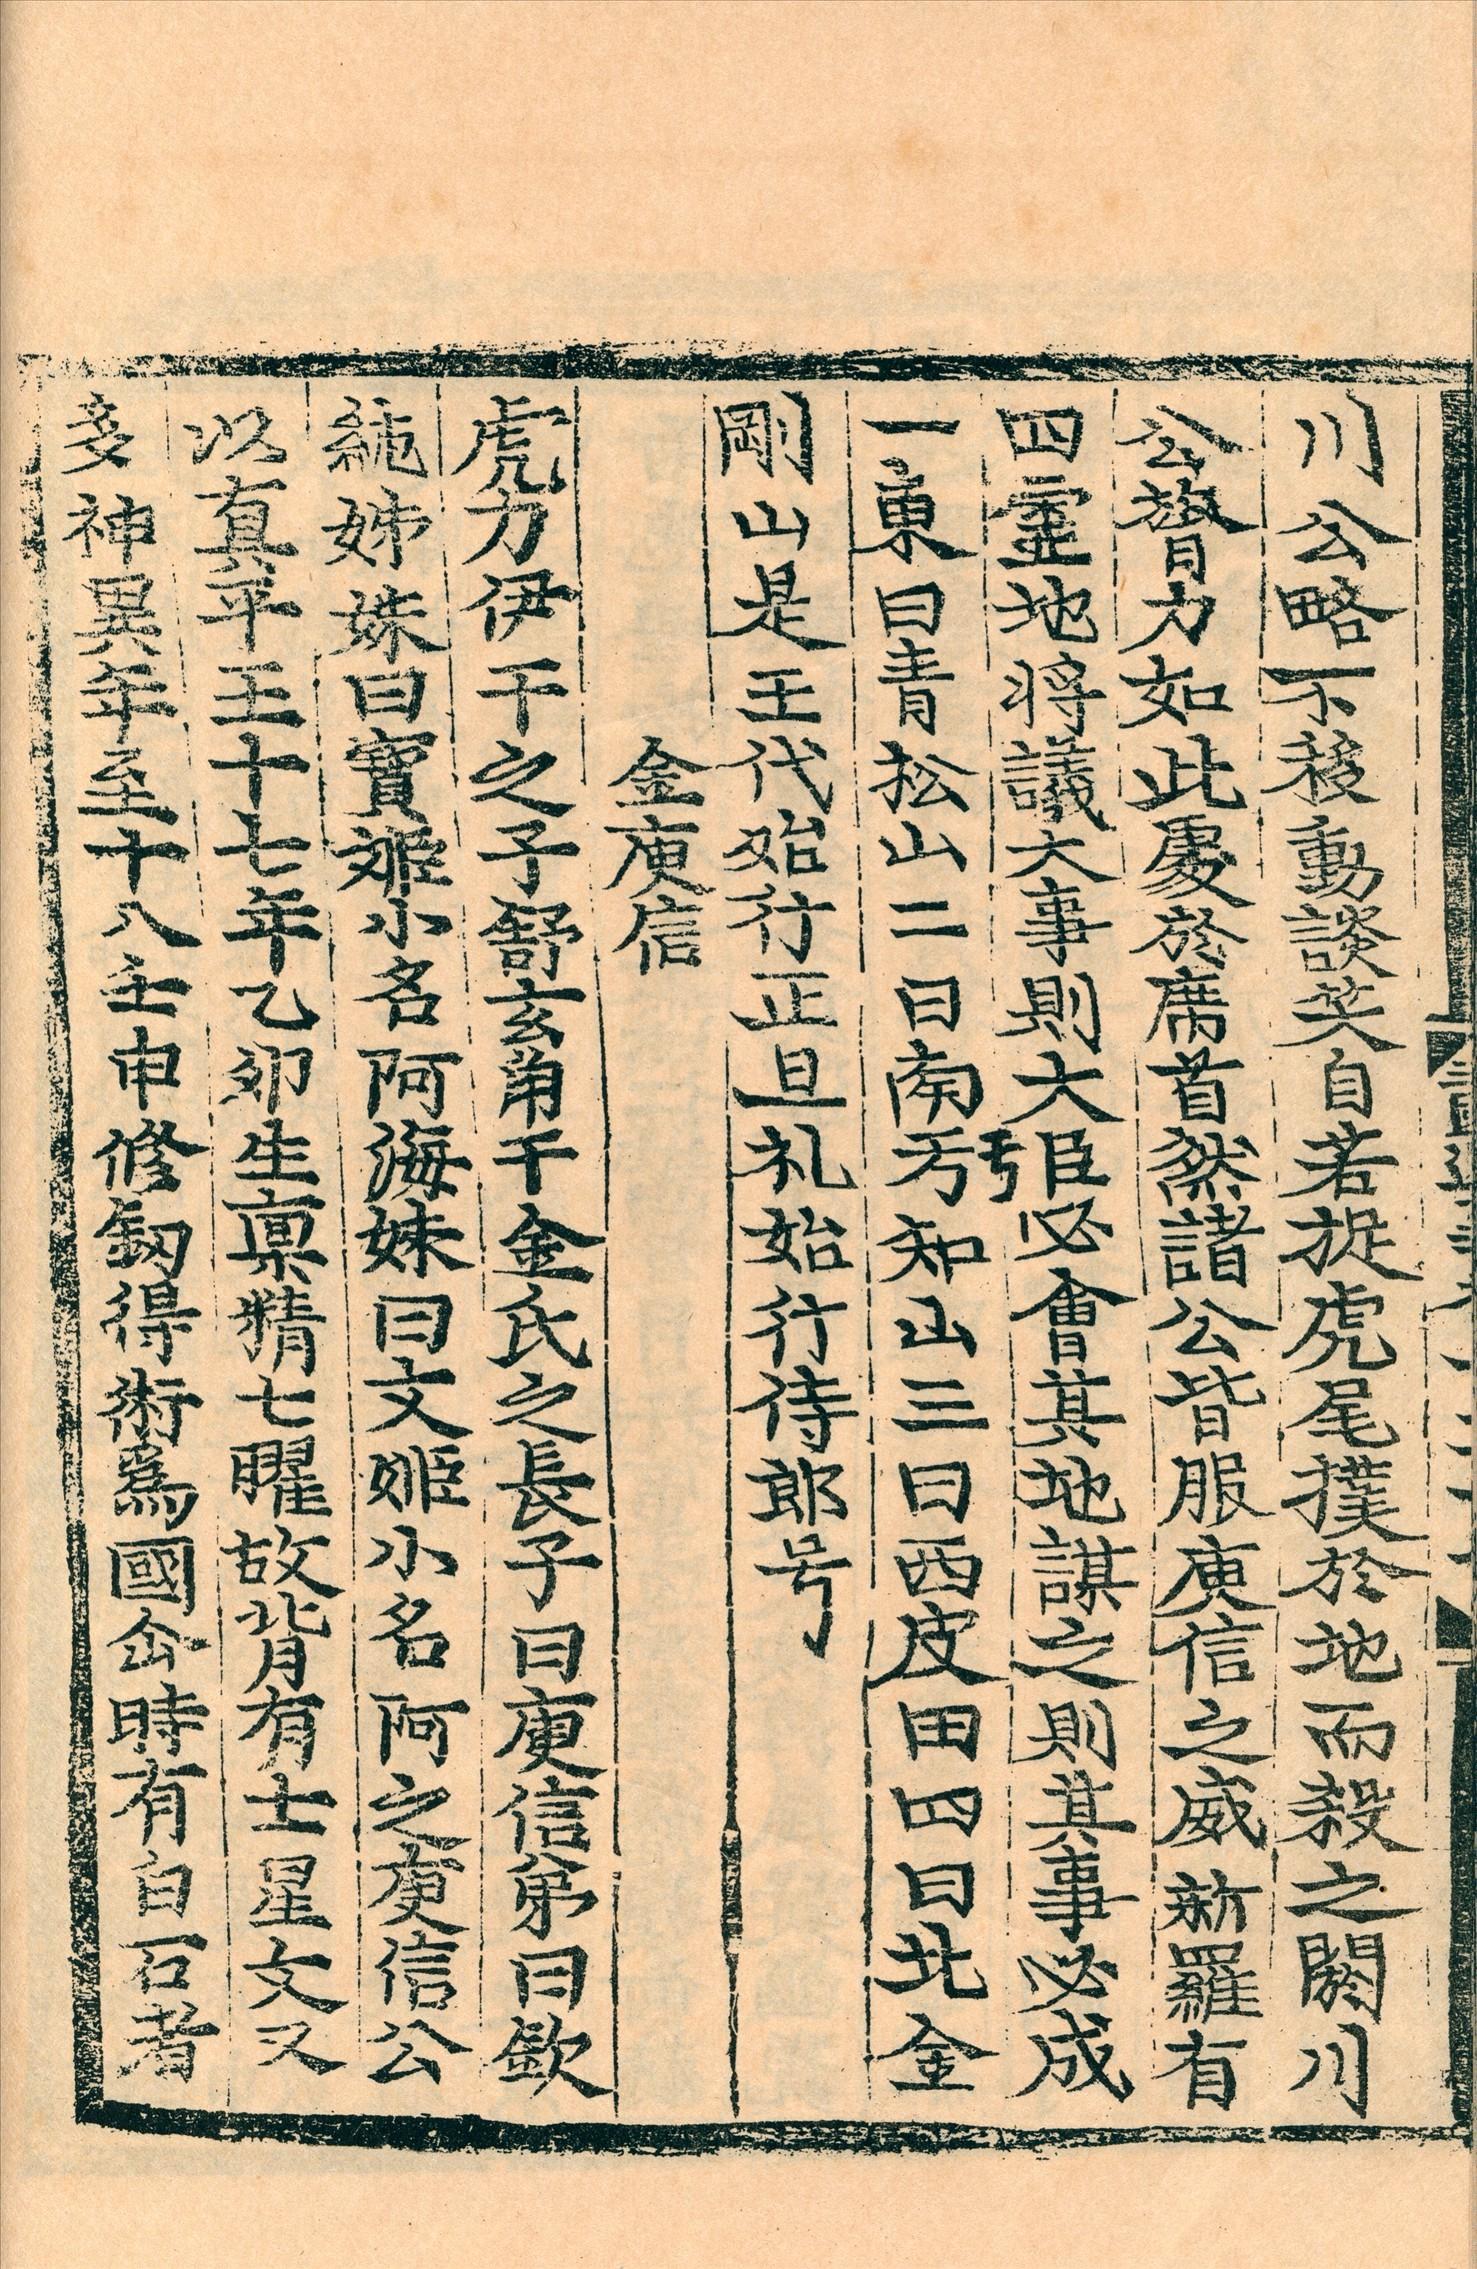 川公略不移動談笑自若捉虎尾撲於地而殺之閼川
公膂力如此處於席首然諸公皆服庾信之威新羅有
四霊地將議大事則大臣必會其地謀之則其事必成
一東曰青松山二曰南亐知山三曰西皮田四曰北金
剛山是王代始行正旦礼始行侍郎号
金庾信
虎力伊干之子舒玄角干金氏之長子曰庾信弟曰欽
純姊妹曰寶姬小名阿海妹曰文姬小名阿之庾信公
以真平王十七年乙卯生禀精七曜故背有七星文又
多神異年至十八壬申修釼得術爲國仚時有白石者